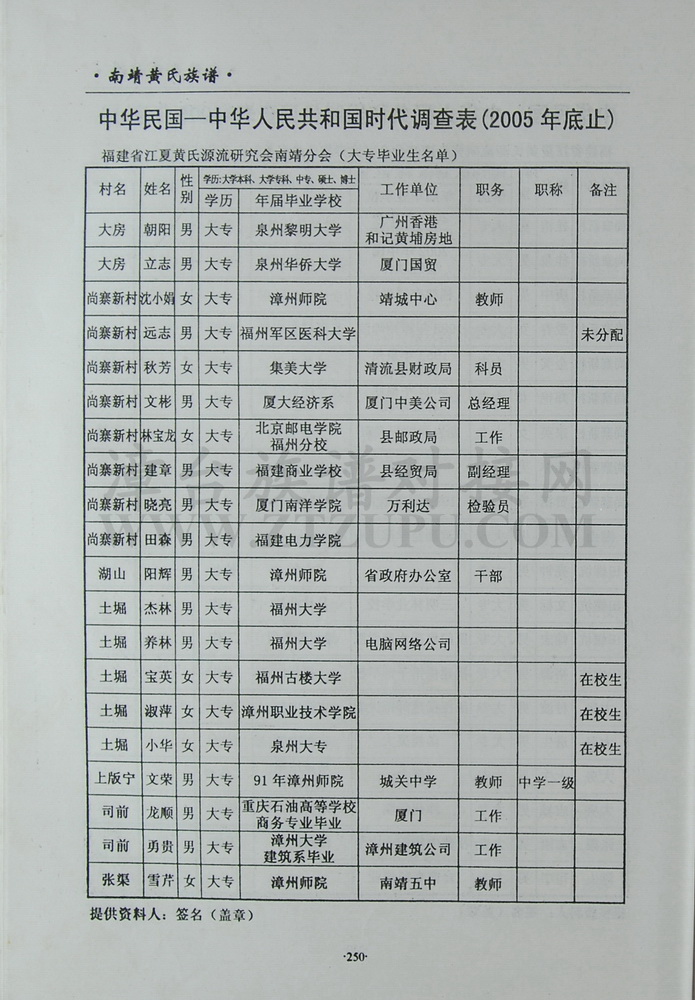 ·南靖黄氏族谱·
中华民国—中华人民共和国时代调查表(2005年底止)
福建省江夏黄氏源流研究会南靖分会（大专毕业生名单）
村名 姓名 性别 学历:大学本科、大学专科、中专、硕士、博士 工作单位 职务 职称 备注
学历 年届毕业学校
大房 朝阳 男 大专 泉州黎明大学 广州香港和记黄埔房地
大房 立志 男 大专 泉州华侨大学 厦门国贸
尚寨新村 沈小娟 女 大专 漳州师院 靖城中心 教师
尚寨新村 远志 男 大专 福州军区医科大学 未分配
尚寨新村 秋芳 女 大专 集美大学 清流县财政局 科员
尚寨新村 文彬 男 大专 厦大经济系 厦门中美公司 总经理
尚寨新村 林宝龙 女 大专 北京邮电学院福州分校 县邮政局 工作
尚寨新村 建章 男 大专 福建商业学校 县经贸局 副经理
尚寨新村 晓亮 男 大专 厦门南洋学院 万利达 检验员
尚寨新村 田森 男 大专 福建电力学院
湖山 阳辉 男 大专 漳州师院 省政府办公室 干部
土堀 杰林 男 大专 福州大学
土堀 养林 男 大专 福州大学 电脑网络公司
土堀 宝英 女 大专 福州古楼大学 在校生
土堀 淑萍 女 大专 漳州职业技术学院 在校生
土堀 小华 女 大专 泉州大专 在校生
上版宁 文荣 男 大专 91年漳州师院 城关中学 教师 中学一级
司前 龙顺 男 大专 重庆石油高等学校商务专业毕业 厦门 工作
司前 勇贵 男 大专 漳州大学建筑系毕业 漳州建筑公司 工作
张渠 雪芹 女 大专 漳州师院 南靖五中 教师
提供资料人：签名（盖章）
·250·
漳台族谱对接网
WWW.ZTZUPU.COM